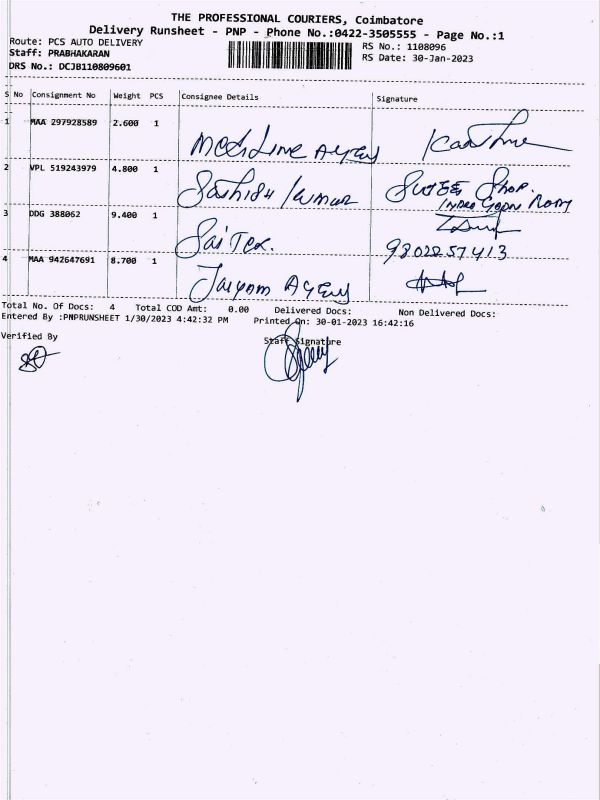 THE PROFESSIONAL COURIERS, Coimbatore
Delivery Runsheet - PNP - Phone No.:0422-3505555 - Page No.:1
Route: PCS AUTO DELIVERY
Staff: PRABHAKARAN
DRS No.: DCJB110809601
RS No.: 1108096
RS Date: 30-Jan-2023
S No Consignment No Weight PCS Consignee Details Signature
1 MAA 297928589 2.600 1 Medi Line Ageny
2 VPL 519243979 4.800 1 Sashidh Kumar Shop.
3 DDG 388062 9.400 1 Sai Tex. 9802257413
4 MAA 942647691 8.700 1 Jaiyam Ageny
Total No. Of Docs: 4 Total COD Amt: 0.00 Delivered Docs: Non Delivered Docs:
Entered By :PNPRUNSHEET 1/30/2023 4:42:32 PM Printed On: 30-01-2023 16:42:16
Verified By
Staff Signature